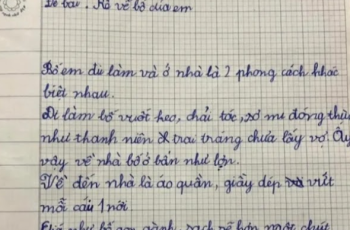 Đề bài. Kể về bố của em
Bố em đi làm và ở nhà là 2 phong cách khác
biệt nhau.
Đi làm bố vuốt keo, chải tóc, sơ mi đóng thùng
như thanh niên & trai tráng chưa lấy vợ. Ấy
vậy về nhà bố ở bẩn như lợn.
Về đến nhà là áo quần, giầy dép vứt
mỗi cái 1 nơi.